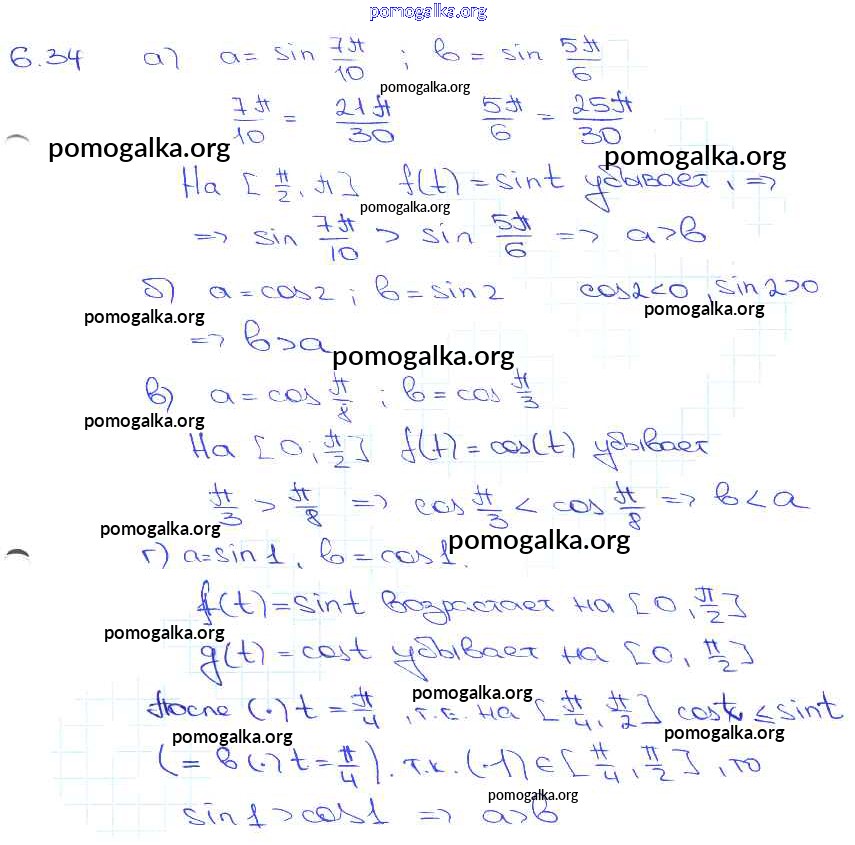 pomogalka.org
6.34 а) a = sin 7π/10 ; b = sin 5π/6
pomogalka.org
7π/10 = 21π/30 5π/6 = 25π/30
pomogalka.org pomogalka.org
На [π/2, π] f(t) = sin t убывает, =>
pomogalka.org
=> sin 7π/10 > sin 5π/6 => a > b
б) a = cos 2 ; b = sin 2 cos 2 < 0, sin 2 > 0
pomogalka.org pomogalka.org
=> b > a
pomogalka.org
в) a = cos π/8 ; b = cos π/3
pomogalka.org
На [0; π/2] f(t) = cos(t) убывает
π/3 > π/8 => cos π/3 < cos π/8 => b < a
pomogalka.org pomogalka.org
г) a = sin 1, b = cos 1.
f(t) = sin t возрастает на [0, π/2]
pomogalka.org
g(t) = cos t убывает на [0, π/2]
pomogalka.org
после (·) t = π/4, т.е. на [π/4, π/2] cos t ≤ sin t
pomogalka.org pomogalka.org
(= в (·) t = π/4). т.к. (·1) ∈ [π/4, π/2], то
pomogalka.org
sin 1 > cos 1 => a > b